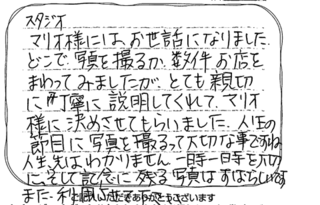 スタジオ
マリオ様には、お世話になりました
どこで写真を撮るか、数件お店を
まわってみましたが、とても親切
に丁寧に説明してくれて、マリオ
様に決めさせてもらいました。人生の
節目に写真を撮るって大切な事ですね
人生先はわかりません 一日一日一時を大切
に、そして記念に残る写真はすばらしいです
また、利用
ありがとうございます